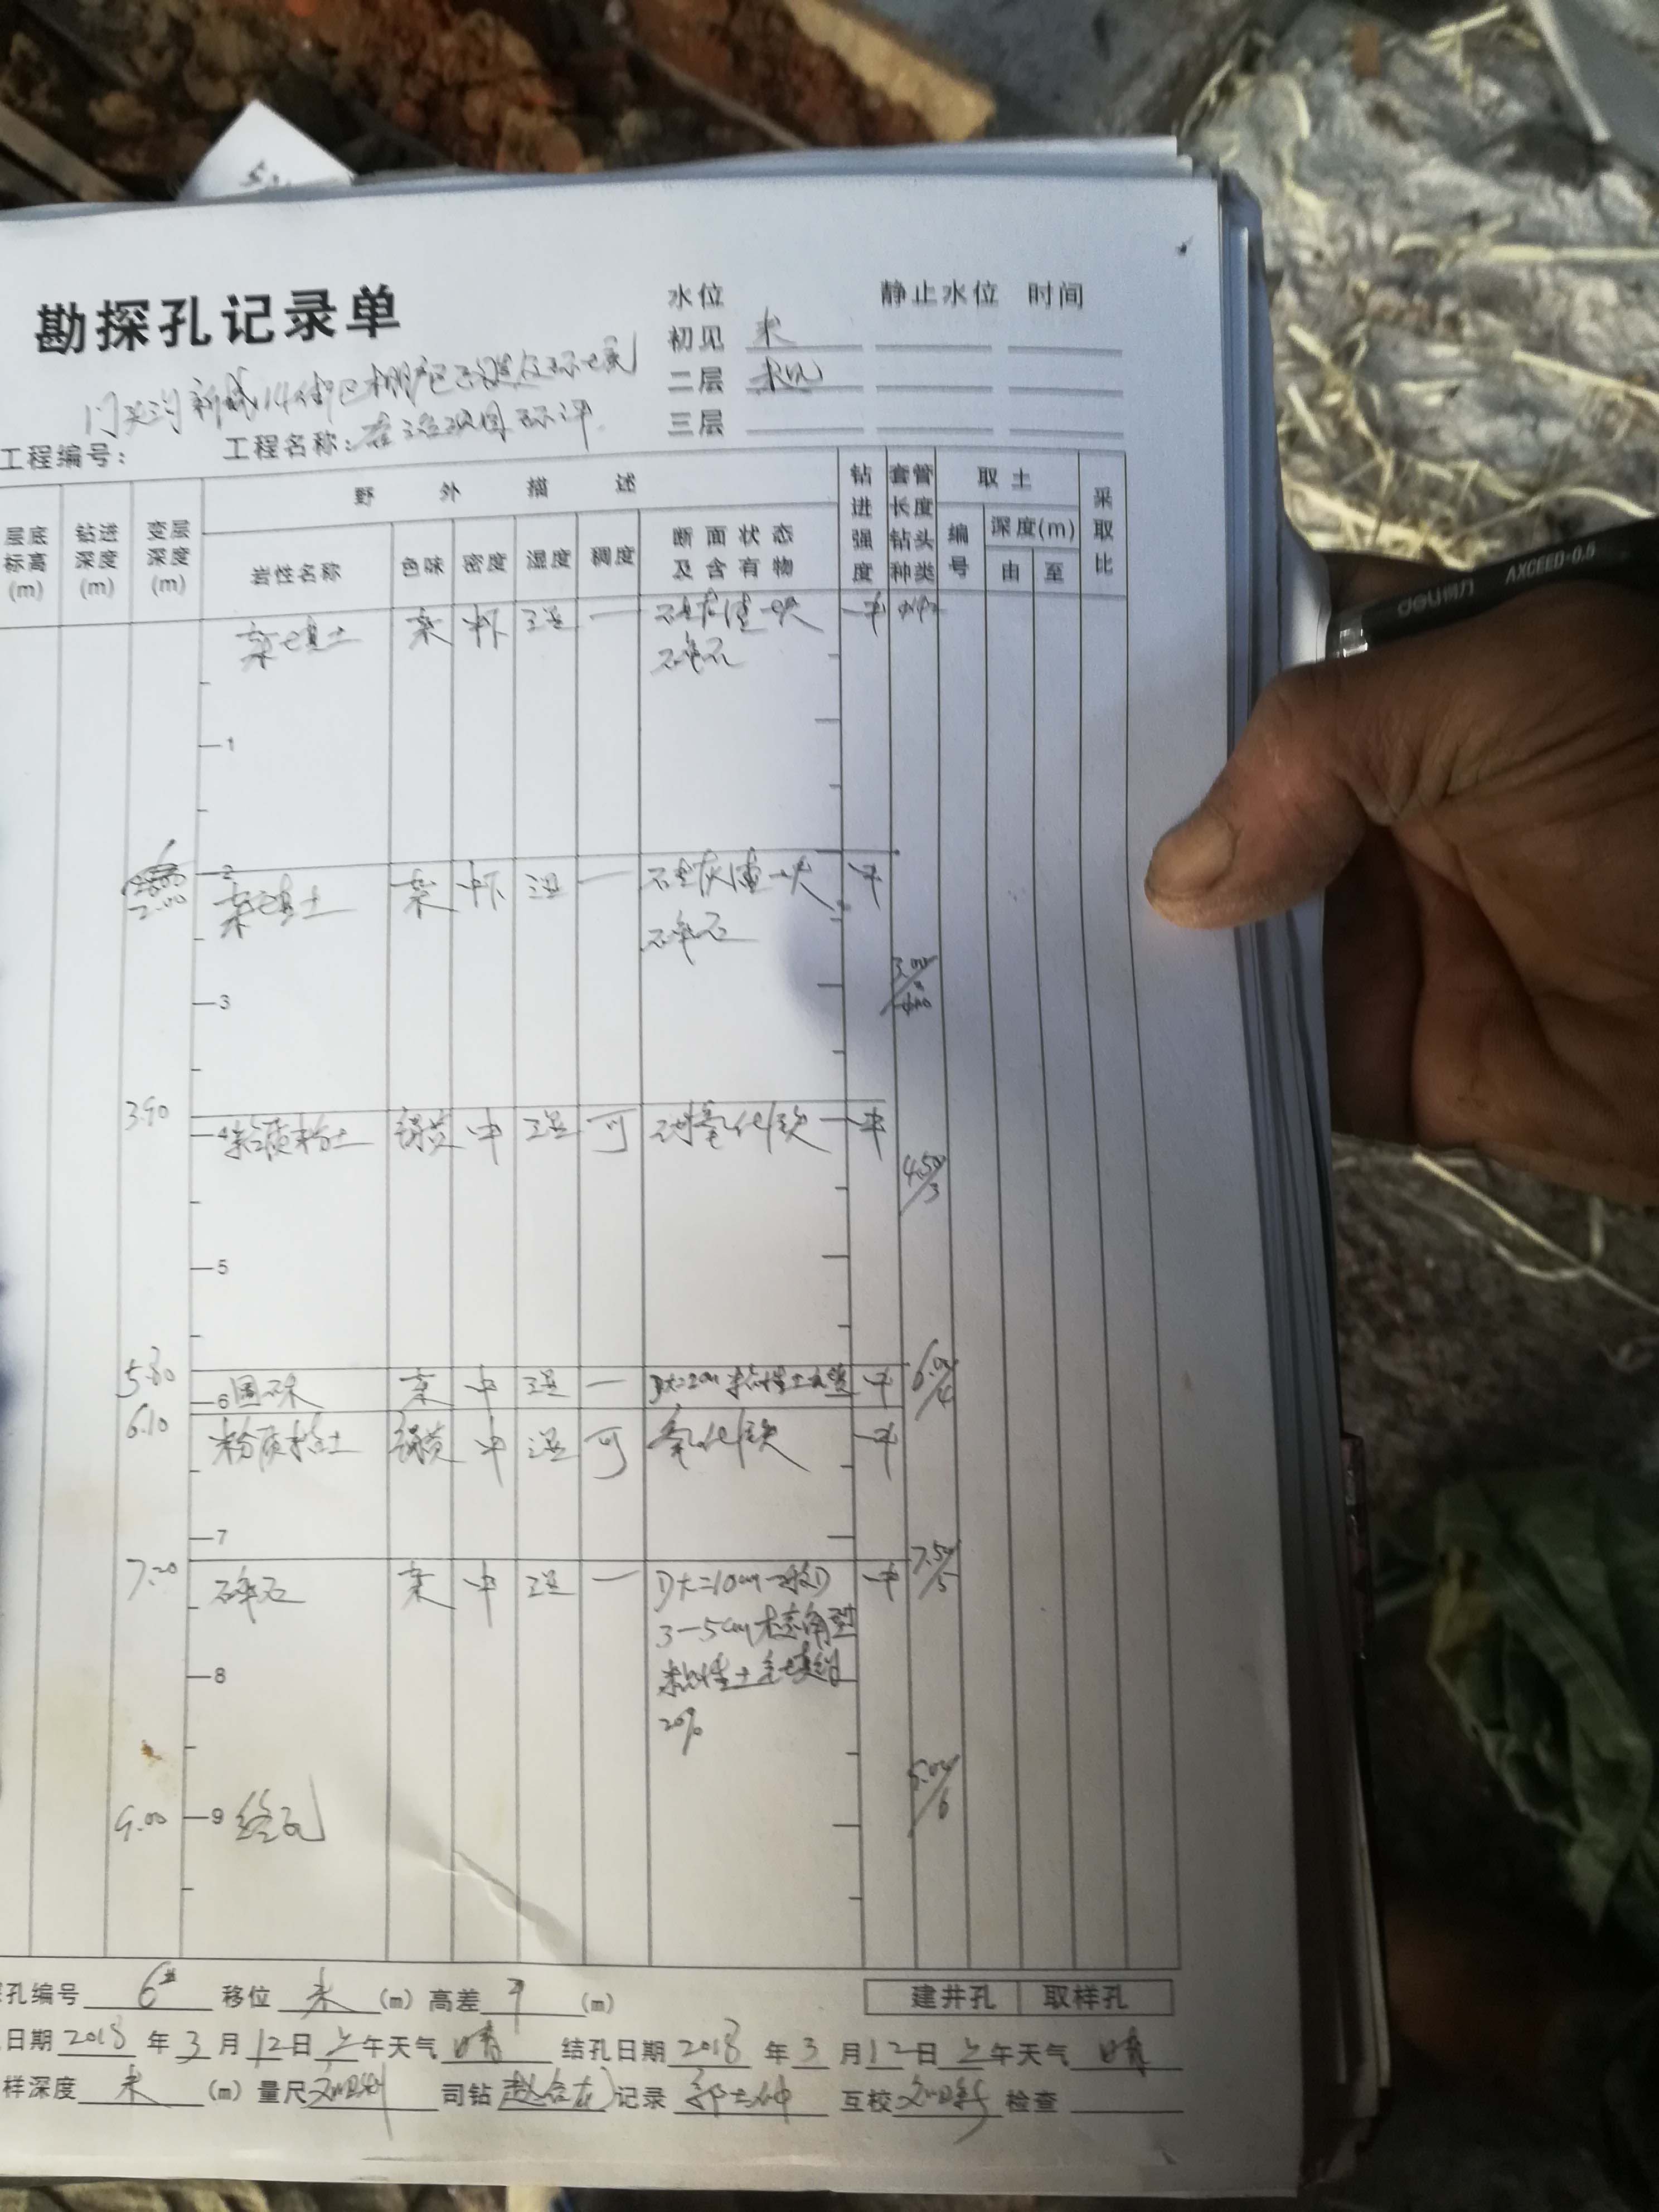 勘探孔记录单
水位 静止水位 时间
初见 未
二层 未见
三层
门头沟新城14街区棚户区改造
工程编号: 工程名称: 环评
层底标高(m) 钻进深度(m) 变层深度(m) 野外描述 钻进强度 套管长度钻头种类 取土 采取比
岩性名称 色味 密度 湿度 稠度 断面状态及含有物 编号 深度(m) 由 至
杂填土 杂 中下 湿 一 石灰渣 块 中
碎石
1
2.00 2 杂填土 杂 中下 湿 一 灰渣 块 中
碎石
3 3.00
3.90 4 粘质粉土 褐黄 中 湿 可 氧化铁 中
4.50/3
5
5.80 6 圆砾 杂 中 湿 一 D大=2cm 粘性土 中 6.00/4
6.10 粉质粘土 褐黄 中 湿 可 氧化铁 中
7
7.20 碎石 杂 中 湿 一 D大=10cm 一般D 中 7.50/5
3-5cm 棱角型
粘性土充填约
8
20%
9.00/6
9.00 9 终孔
孔编号 6# 移位 未 (m) 高差 平 (m) 建井孔 取样孔
日期 2018 年 3 月 12 日 上 午天气 晴 结孔日期 2018 年 3 月 12 日 上 午天气 晴
样深度 未 (m) 量尺 司钻 记录 互校 检查
deli得力 AXCEED-0.5